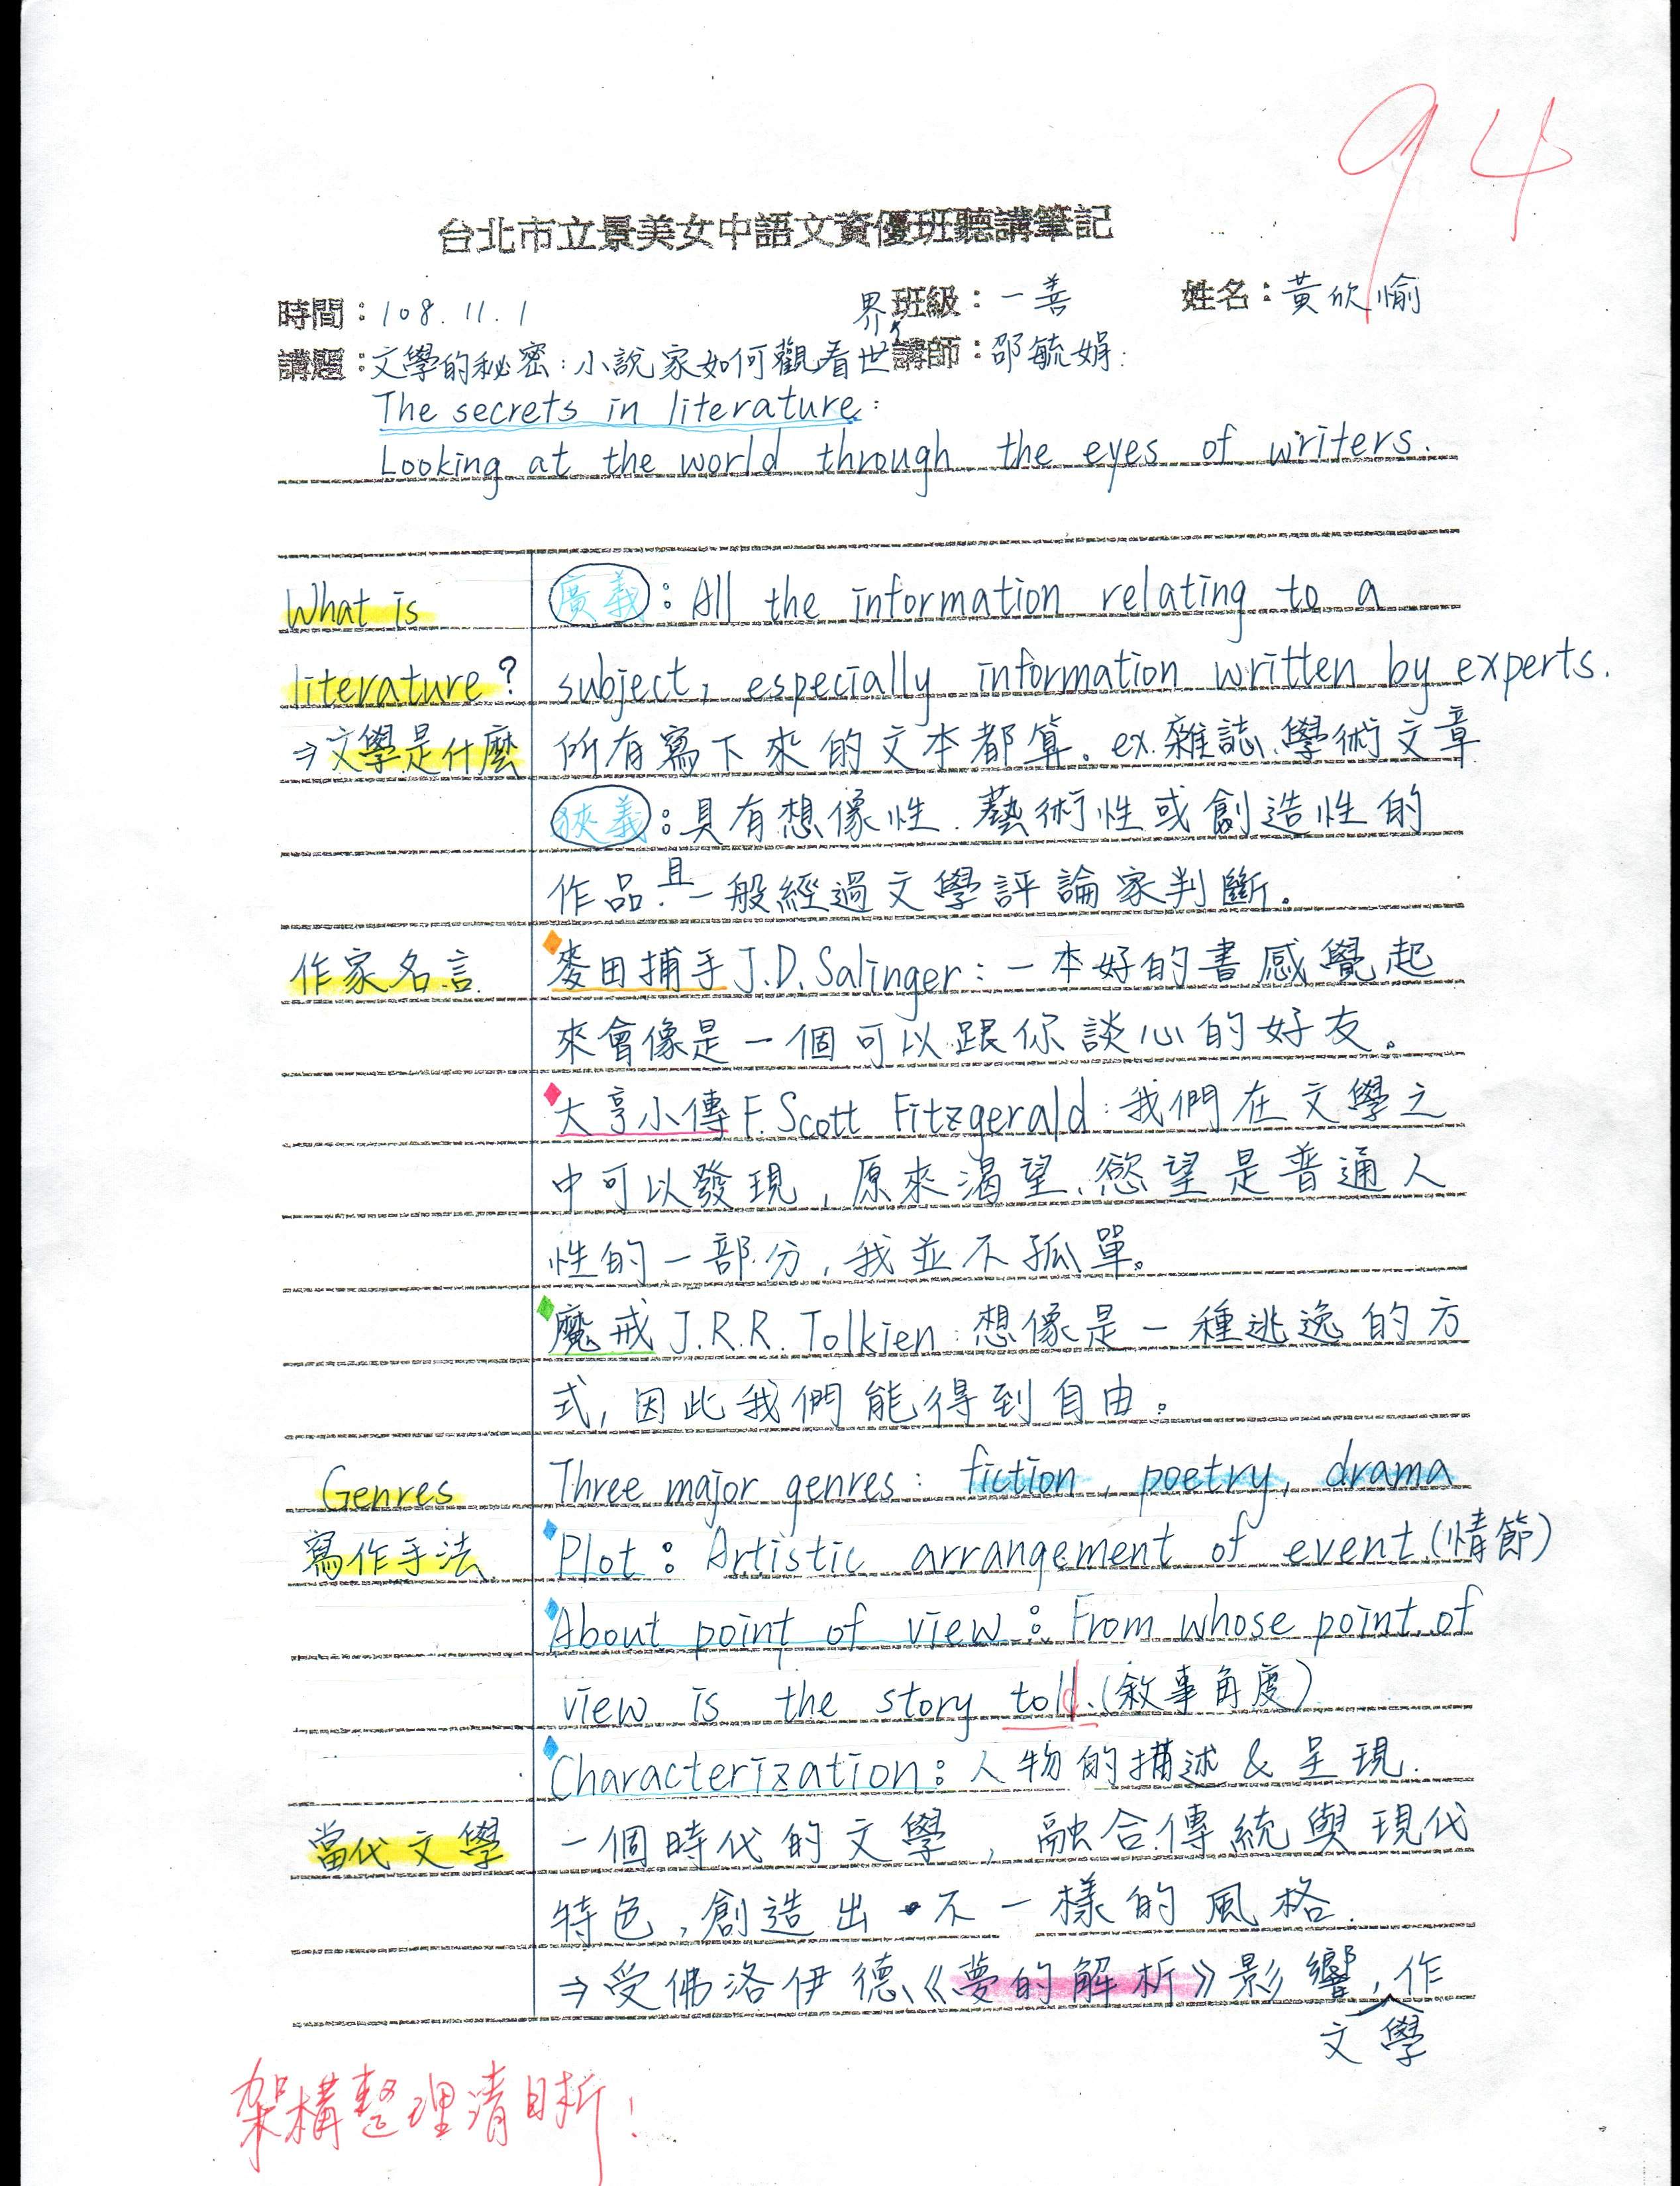 94
台北市立景美女中語文資優班聽講筆記
時間：108.11.1 班級：一善 姓名：黃欣愉
講題：文學的秘密：小說家如何觀看世界 講師：邵毓娟
The secrets in literature:
Looking at the world through the eyes of writers.
What is 廣義：All the information relating to a
literature? subject, especially information written by experts.
⇒文學是什麼 所有寫下來的文本都算。ex.雜誌、學術文章
狹義：具有想像性、藝術性或創造性的
作品.且一般經過文學評論家判斷。
作家名言 麥田捕手 J.D. Salinger：一本好的書感覺起
來會像是一個可以跟你談心的好友。
大亨小傳 F. Scott Fitzgerald：我們在文學之
中可以發現，原來渴望、慾望是普通人
性的一部分，我並不孤單。
魔戒 J.R.R. Tolkien：想像是一種逃逸的方
式，因此我們能得到自由。
Genres Three major genres: fiction, poetry, drama
寫作手法 Plot：Artistic arrangement of event.(情節)
About point of view：From whose point of
view is the story told.(敘事角度)
Characterization：人物的描述 & 呈現.
當代文學 一個時代的文學，融合傳統與現代
特色，創造出不一樣的風格.
⇒受佛洛伊德《夢的解析》影響，文學作
架構整理清晰！